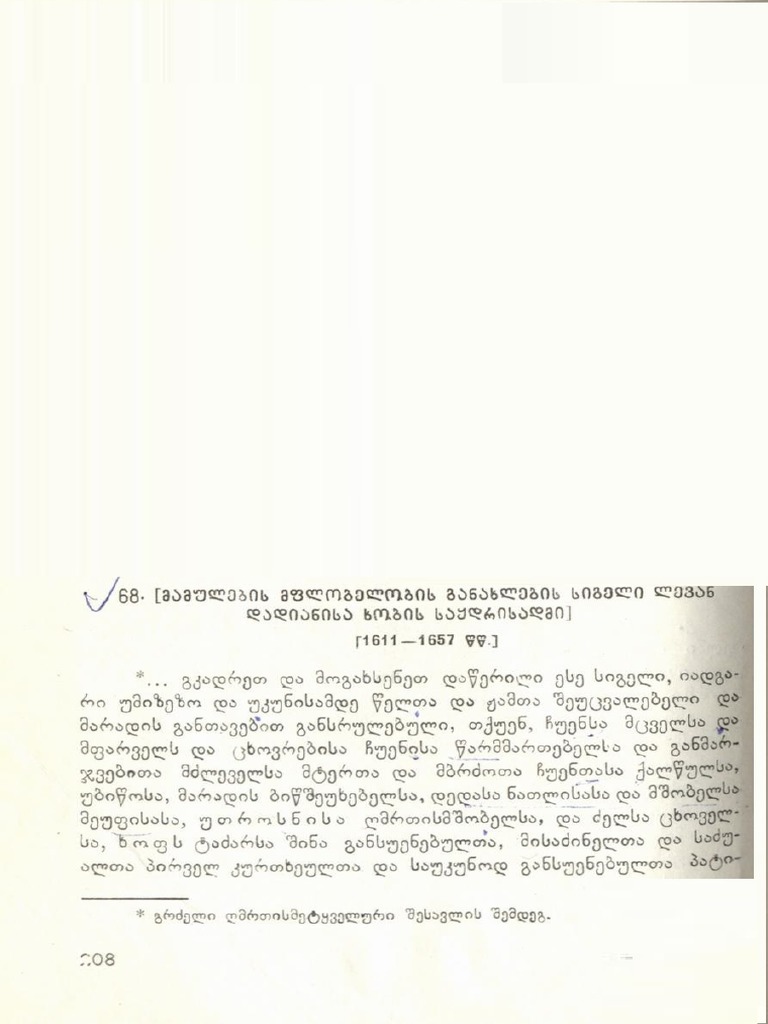 68. [მამულების მფლობელობის განახლების სიგელი ლევან
დადიანისა ხობის საყდრისადმი]
[1611—1657 წწ.]
*... გკადრეთ და მოგახსენეთ დაწერილი ესე სიგელი, იადგა-
რი უმიზეზო და უკუნისამდე წელთა და ჟამთა შეუცვალებელი და
მარადის განთავებით განსრულებული, თქუენ, ჩუენსა მცველსა და
მფარველს და ცხოვრებისა ჩუენისა წარმმართებელსა და განმარ-
ჯვებითა მძლეველსა მტერთა და მბრძოთა ჩუენთასა ქალწულსა,
უბიწოსა, მარადის ბიწშეუხებელსა, დედასა ნათლისასა და მშობელსა
მეუფისასა, უთროსნისა ღმრთისმშობელსა, და ძელსა ცხოველ-
სა, ხოფს ტაძარსა შინა განსუენებულთა, მისაძინელთა და საძუ-
ალთა პირველ კურთხეულთა და საუკუნოდ განსუენებულთა პატი-
* გრძელი ღმრთისმეტყველური შესავლის შემდეგ.
208